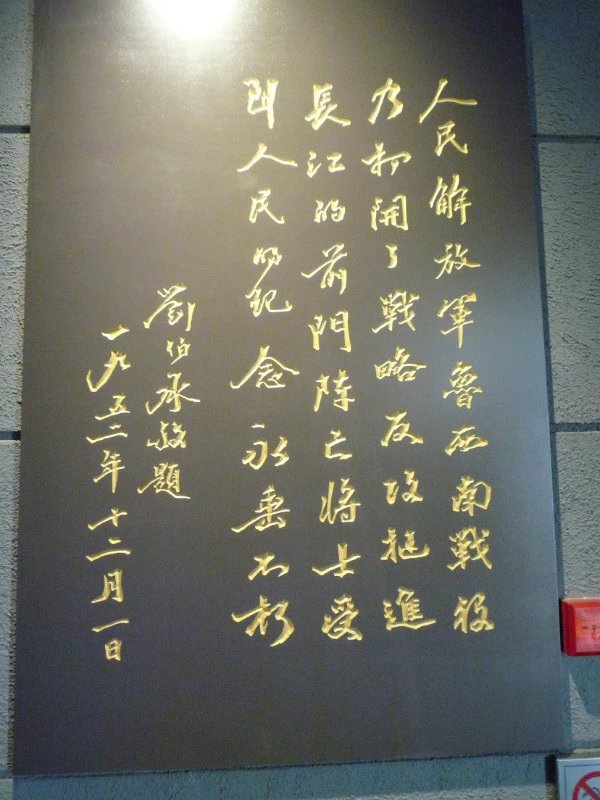 人民解放軍魯西南戰役
乃打開了戰略反攻挺進
長江的前門陣亡將士受
到人民的紀念永垂不朽
劉伯承敬題
一九五二年十二月一日